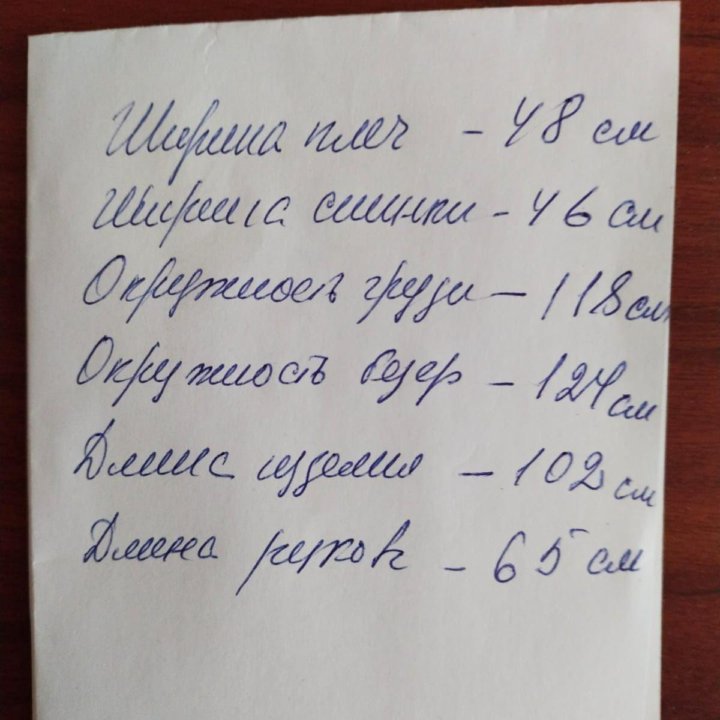 Ширина плеч - 48 см
Ширина спинки - 46 см
Окружность груди - 118 см
Окружность бедер - 124 см
Длина изделия - 102 см
Длина руков - 65 см